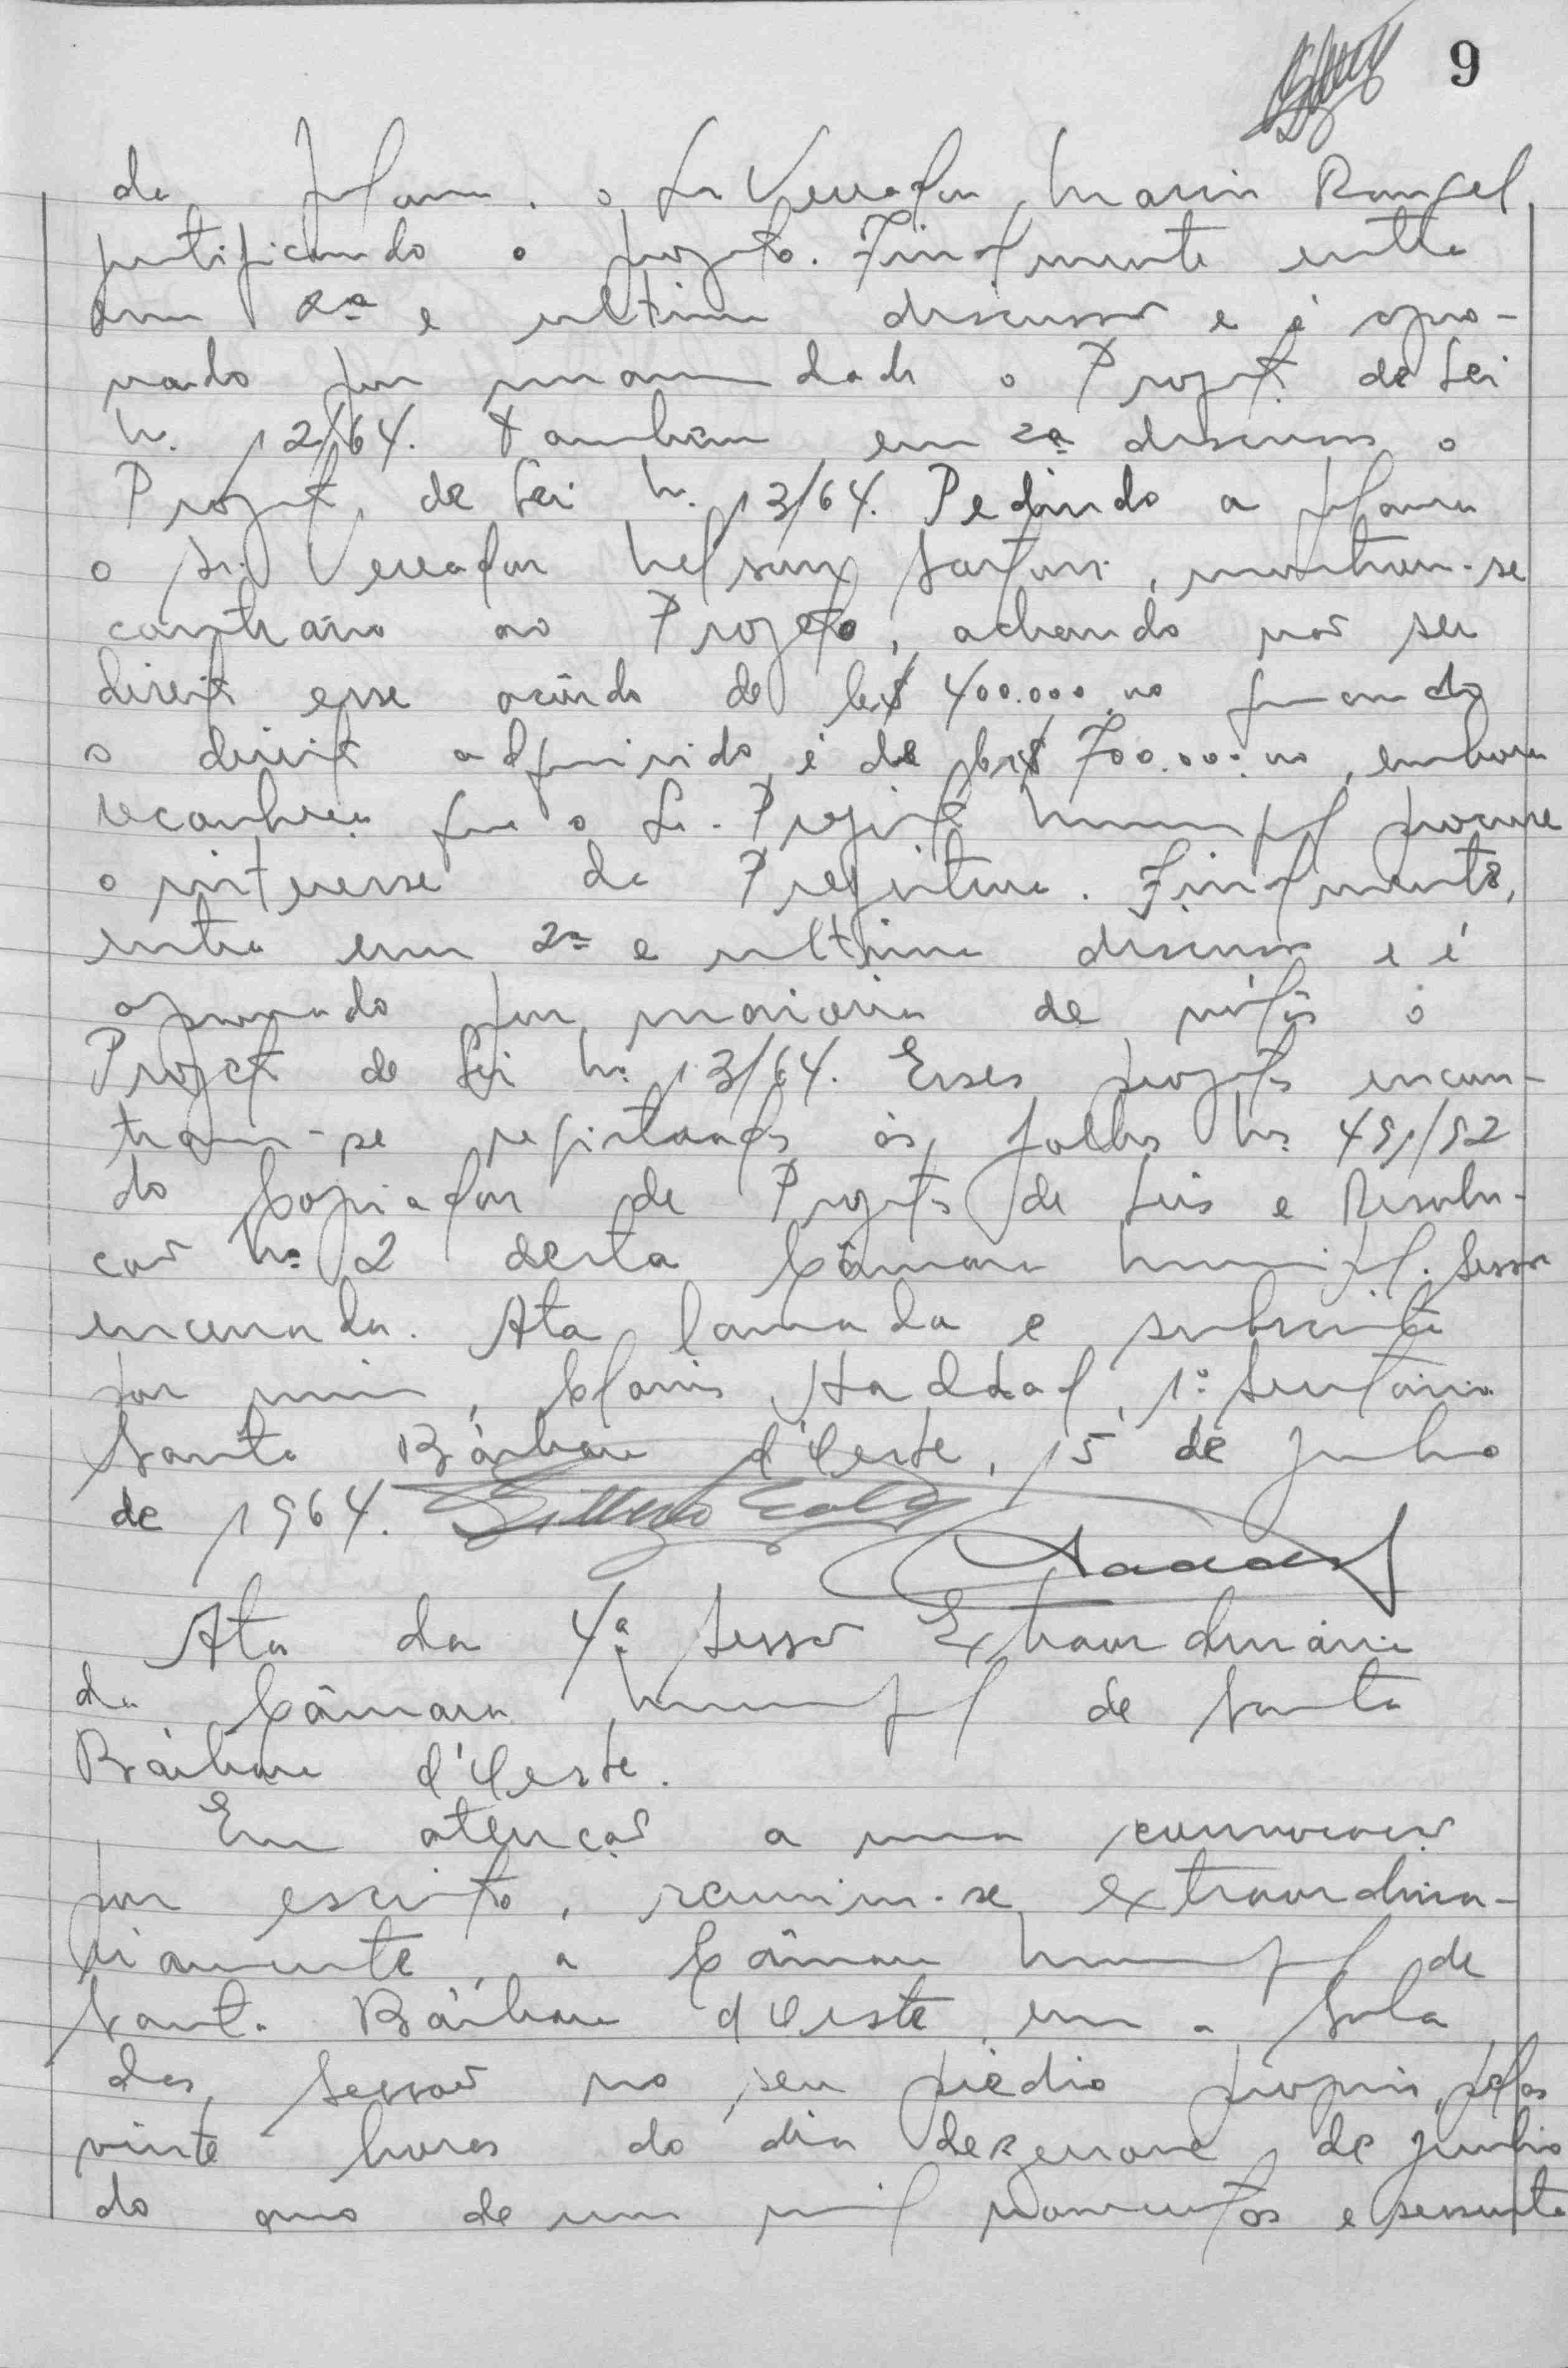 9
da palavra, o Sr Vereador Mario Rangel,
justificando o projeto. Finalmente entra
em 2ª e ultima discussão e é apro-
vado por unanimidade o Projeto de Lei
n. 12/64. Também em 2ª discussão o
Projeto de Lei n. 13/64. Pedindo a palavra
o Sr. Vereador Nelson Sartori, mostrou-se
contrário ao Projeto, achando não ser
direito esse acôrdo de Cr$ 400.000,00 quando
o direito adquirido é de Cr$ 700.000,00, embora
reconheça que o Sr. Prefeito Municipal procure
o interesse da Prefeitura. Finalmente,
entra em 2ª e ultima discussão e é
aprovado por maioria de vótos o
Projeto de Lei nº 13/64. Esses projetos encon-
tram-se registrados às folhas ns 491/92
do Copiador de Projetos de Leis e Resolu-
ção nº 2 desta Câmara Municipal. Sessão
encerrada. Ata lavrada e subscrita
por mim, Clovis Haddad, 1º Secretário
Santa Bárbara d'Oeste, 15 de junho
de 1964.
Ata da 4ª Sessão Extraordinária
da Câmara Municipal de Santa
Bárbara d'Oeste.
Em atenção a uma convocação
por escrito, reuniu-se extraordina-
riamente, a Câmara Municipal de
Santa Bárbara d'Oeste, em a Sala
das Sessões no seu prédio próprio, pelas
vinte horas do dia dezenove de junho
do ano de um mil novecentos e sessenta